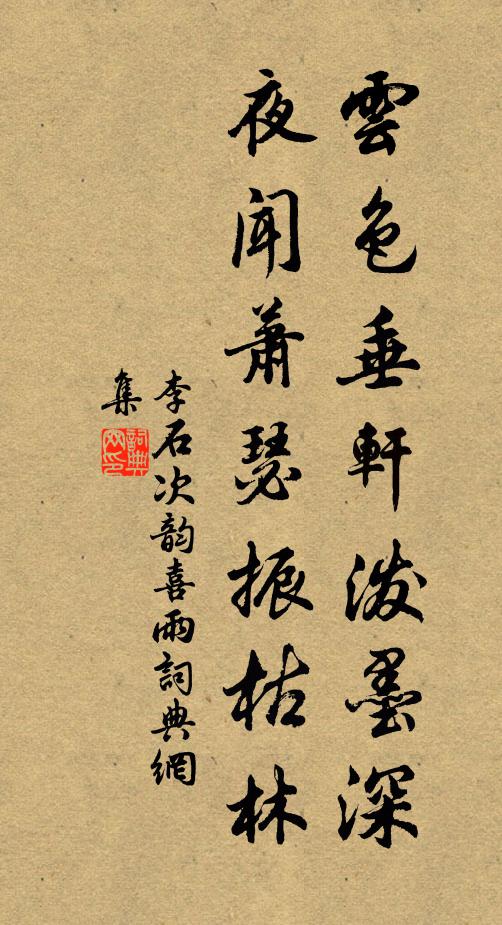 雲色垂軒潑墨深
夜聞蕭瑟振枯林
李石次韵喜雨詞典網
集
詞典
网印